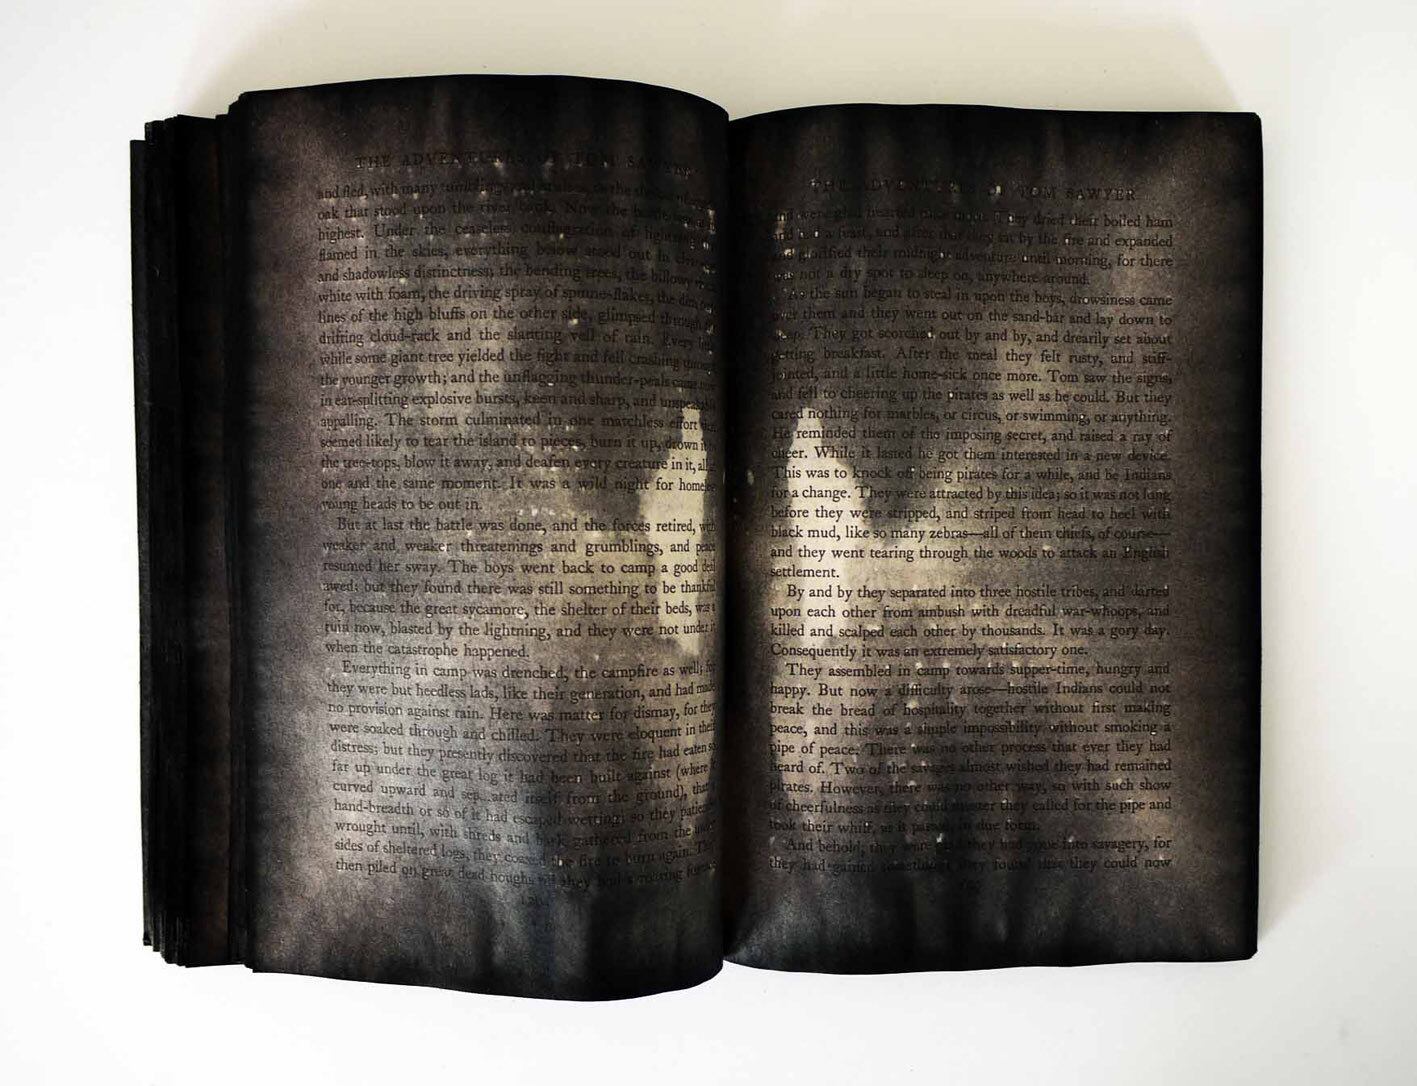 THE ADVENTURES OF TOM SAWYER
and fled, with many
oak that stood upon the river bank. Now the battle
highest. Under the ceaseless conflagration of lightning
flamed in the skies, everything below stood out in
and shadowless distinctness; the bending trees, the billowy
white with foam, the driving spray of spume-flakes, the dim
lines of the high bluffs on the other side, glimpsed through
drifting cloud-rack and the slanting veil of rain. Every
while some giant tree yielded the fight and fell crashing
the younger growth; and the unflagging thunder-peals came
in ear-splitting explosive bursts, keen and sharp, and
appalling. The storm culminated in one matchless effort
seemed likely to tear the island to pieces, burn it up, drown
the tree-tops, blow it away, and deafen every creature in it, all
one and the same moment. It was a wild night for
young heads to be out in.
But at last the battle was done, and the forces retired,
weaker and weaker threatenings and grumblings, and
resumed her sway. The boys went back to camp a good
awed; but they found there was still something to be thankful
for, because the great sycamore, the shelter of their beds, was
ruin now, blasted by the lightning, and they were not under
when the catastrophe happened.
Everything in camp was drenched, the campfire as well;
they were but heedless lads, like their generation, and had made
no provision against rain. Here was matter for dismay, for they
were soaked through and chilled. They were eloquent in their
distress; but they presently discovered that the fire had eaten
far up under the great log it had been built against (where
curved upward and itself from the ground),
hand-breadth or so of it had escaped wetting; so they
wrought until, with shreds and bark gathered from the
sides of sheltered logs, they coaxed the fire to burn again.
then piled on great dead boughs till they had a roaring
THE ADVENTURES OF TOM SAWYER
and were glad hearted once more. They dried their boiled ham
and had a feast, and after that they sat by the fire and expanded
and glorified their midnight adventure until morning, for there
was not a dry spot to sleep on, anywhere around.
As the sun began to steal in upon the boys, drowsiness came
over them and they went out on the sand-bar and lay down to
sleep. They got scorched out by and by, and drearily set about
getting breakfast. After the meal they felt rusty, and stiff-
jointed, and a little home-sick once more. Tom saw the signs,
and fell to cheering up the pirates as well as he could. But they
cared nothing for marbles, or circus, or swimming, or anything.
He reminded them of the imposing secret, and raised a ray of
cheer. While it lasted he got them interested in a new device.
This was to knock off being pirates for a while, and be Indians
for a change. They were attracted by this idea; so it was not long
before they were stripped, and striped from head to heel with
black mud, like so many zebras—all of them chiefs, of course—
and they went tearing through the woods to attack an English
settlement.
By and by they separated into three hostile tribes, and darted
upon each other from ambush with dreadful war-whoops, and
killed and scalped each other by thousands. It was a gory day.
Consequently it was an extremely satisfactory one.
They assembled in camp towards supper-time, hungry and
happy. But now a difficulty arose—hostile Indians could not
break the bread of hospitality together without first making
peace, and this was a simple impossibility without smoking a
pipe of peace. There was no other process that ever they had
heard of. Two of the savages almost wished they had remained
pirates. However, there was no other way, so with such show
of cheerfulness as they could muster they called for the pipe and
took their whiff, as it passed, in due form.
And behold, they were glad they had gone into savagery, for
they had gained something; they found that they could now